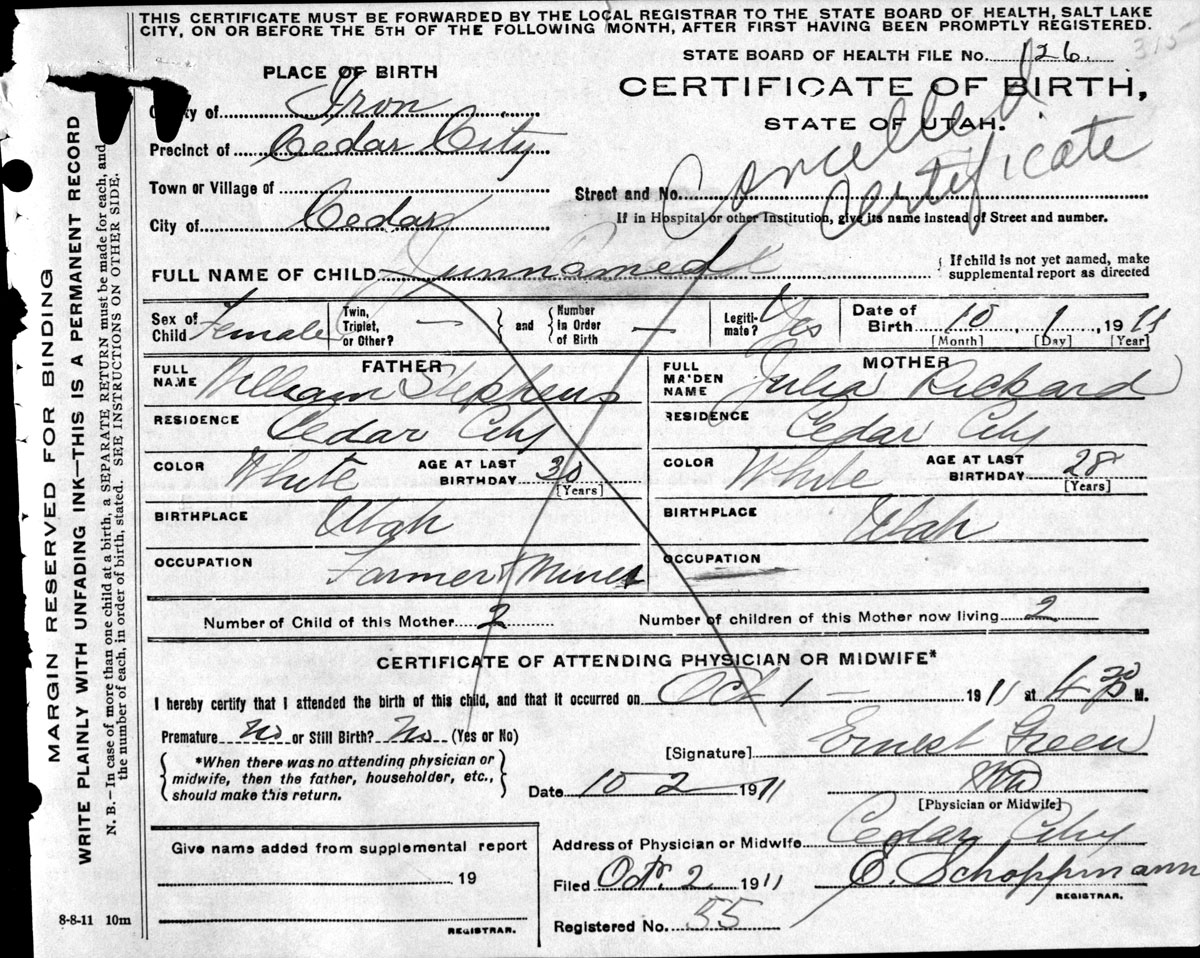 THIS CERTIFICATE MUST BE FORWARDED BY THE LOCAL REGISTRAR TO THE STATE BOARD OF HEALTH, SALT LAKE
CITY, ON OR BEFORE THE 5TH OF THE FOLLOWING MONTH, AFTER FIRST HAVING BEEN PROMPTLY REGISTERED.
315
STATE BOARD OF HEALTH FILE No. 126.
PLACE OF BIRTH
CERTIFICATE OF BIRTH,
STATE OF UTAH.
Cancelled
Certificate
County of Iron
Precinct of Cedar City
Town or Village of
Street and No.
City of Cedar
If in Hospital or other Institution, give its name instead of Street and number.
FULL NAME OF CHILD unnamed
{ If child is not yet named, make
supplemental report as directed
Sex of Child Female
Twin, Triplet, or Other? —
and
Number in Order of Birth —
Legitimate? Yes
Date of Birth 10 1 1911
[Month] [Day] [Year]
FATHER
FULL NAME William Stephens
MOTHER
FULL MAIDEN NAME Julia Rickard
RESIDENCE Cedar City
RESIDENCE Cedar City
COLOR White AGE AT LAST BIRTHDAY 30 [Years]
COLOR White AGE AT LAST BIRTHDAY 28 [Years]
BIRTHPLACE Utah
BIRTHPLACE Utah
OCCUPATION Farmer & Miner
OCCUPATION
Number of Child of this Mother 2
Number of children of this Mother now living 2
CERTIFICATE OF ATTENDING PHYSICIAN OR MIDWIFE*
I hereby certify that I attended the birth of this child, and that it occurred on Oct 1 — 1911 at M.
Premature No or Still Birth? No (Yes or No)
[Signature] Ernest Green
*When there was no attending physician or
midwife, then the father, householder, etc.,
should make this return.
Date 10 2 1911
[Physician or Midwife]
Give name added from supplemental report
19
REGISTRAR.
Address of Physician or Midwife Cedar City
Filed Oct. 2 1911 E. Schoppmann
REGISTRAR.
Registered No. 55
8-8-11 10m
MARGIN RESERVED FOR BINDING
WRITE PLAINLY WITH UNFADING INK—THIS IS A PERMANENT RECORD
N. B.—In case of more than one child at a birth, a SEPARATE RETURN must be made for each, and
the number of each, in order of birth, stated. SEE INSTRUCTIONS ON OTHER SIDE.